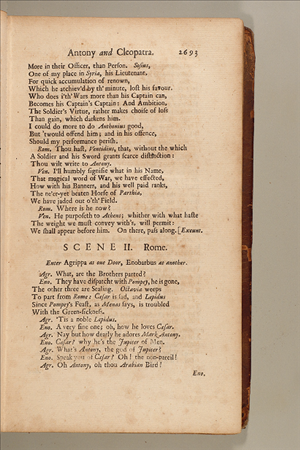 Antony and Cleopatra. 2693
More in their Officer, than Person. Sosius,
One of my place in Syria, his Lieutenant.
For quick accumulation of renown,
Which he atchiev'd by th' minute, lost his favour.
Who does i'th' Wars more than his Captain can,
Becomes his Captain's Captain: And Ambition,
The Soldier's Virtue, rather makes choise of loss
Than gain, which darkens him.
I could do more to do Anthonius good,
But 'twould offend him; and in his offence,
Should my performance perish.
Rom. Thou hast, Ventidius, that, without the which
A Soldier and his Sword grants scarce distinction:
Thou wilt write to Antony.
Ven. I'll humbly signifie what in his Name,
That magical word of War, we have effected,
How with his Banners, and his well paid ranks,
The ne'er-yet beaten Horse of Parthia,
We have jaded out o'th' Field.
Rom. Where is he now?
Ven. He purposeth to Athens; whither with what haste
The weight we must convey with's, will permit:
We shall appear before him. On there, pass along. [Exeunt.
SCENE II. Rome.
Enter Agrippa at one Door, Enobarbus at another.
Agr. What, are the Brothers parted?
Eno. They have dispatcht with Pompey, he is gone,
The other three are Sealing. Octavia weeps
To part from Rome: Cæsar is sad, and Lepidus
Since Pompey's Feast, as Menas says, is troubled
With the Green-sickness.
Agr. 'Tis a noble Lepidus.
Eno. A very fine one; oh, how he loves Cæsar.
Agr. Nay but how dearly he adores Mark Antony.
Eno. Cæsar? why he's the Jupiter of Men.
Agr. What's Antony, the god of Jupiter?
Eno. Speak you of Cæsar? Oh! the non-pareil!
Agr. Oh Antony, oh thou Arabian Bird!
Eno.